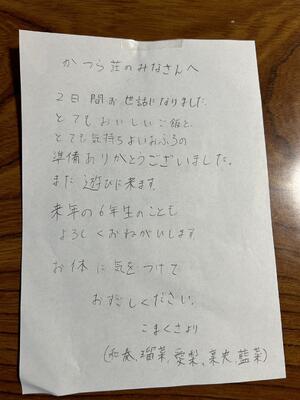 かつら荘のみなさんへ
2日間お世話になりました。
とてもおいしいご飯と、
とても気持ちよいおふろの
準備ありがとうございました。
また遊びに来ます。
来年の6年生のことも
よろしくおねがいします
お体に気をつけて
おすごしください。
こまくさより
(和奏,瑠菜,愛梨,菜央,藍菜)